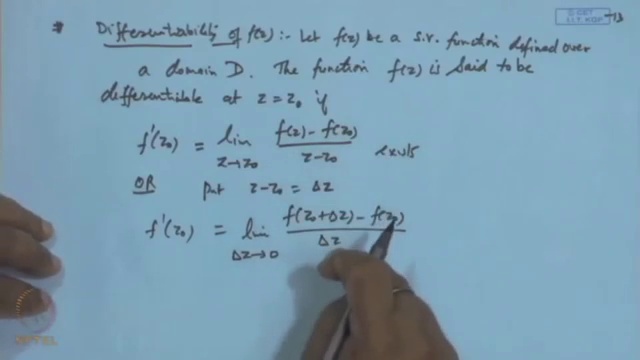 * Differentiability of f(z) :- Let f(z) be a s.v. function defined over
a domain D. The function f(z) is said to be
differentiable at z = z₀ if
f'(z₀) = lim z→z₀ f(z) - f(z₀) / z - z₀ exists
OR put z - z₀ = Δz
f'(z₀) = lim Δz→0 f(z₀ + Δz) - f(z₀) / Δz
© CET
I.I.T. KGP
NPTEL